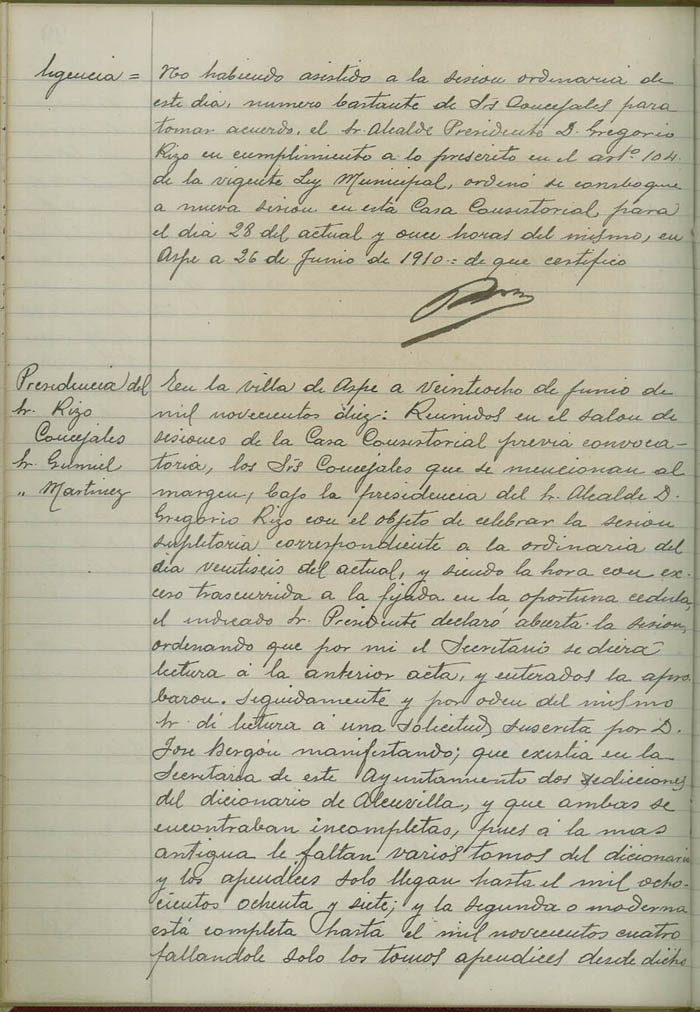 ligencia =
No habiendo asistido a la sesion ordinaria de
este dia, numero bastante de Srs Concejales para
tomar acuerdo, el Sr. Alcalde Presidente D. Gregorio
Rizo en cumplimiento a lo prescrito en el artº 104
de la vigente Ley Municipal, ordenó se conboque
a nueva sesion en esta Casa Consistorial, para
el dia 28 del actual y once horas del mismo, en
Aspe a 26 de Junio de 1910 = de que certifico
Presidencia del
Sr. Rizo
Concejales
Sr. Gumiel
" Martinez
En la villa de Aspe a veintiocho de junio de
mil novecientos diez: Reunidos en el salon de
sesiones de la Casa Consistorial previa convoca-
toria, los Srs Concejales que se mencionan al
margen, bajo la presidencia del Sr. Alcalde D.
Gregorio Rizo con el objeto de celebrar la sesion
supletoria correspondiente a la ordinaria del
dia veintiseis del actual, y siendo la hora con ex-
ceso trascurrida a la fijada en la oportuna cedula,
el indicado Sr. Presidente declaró abierta la sesion,
ordenando que por mi el Secretario se diera
lectura á la anterior acta, y enterados la apro-
baron. Seguidamente y por orden del mismo
Sr. di lectura á una solicitud, suscrita por D.
Jose Bergón manifestando; que existia en la
Secretaria de este Ayuntamiento dos edicciones
del dicionario de Alcuvilla, y que ambas se
encontraban incompletas, pues á la mas
antigua le faltan varios tomos del dicionario
y los apendices solo llegan hasta el mil ocho-
cientos ochenta y siete; y la segunda o moderna
está completa hasta el mil novecientos cuatro
faltandole solo los tomos apendices desde dicho